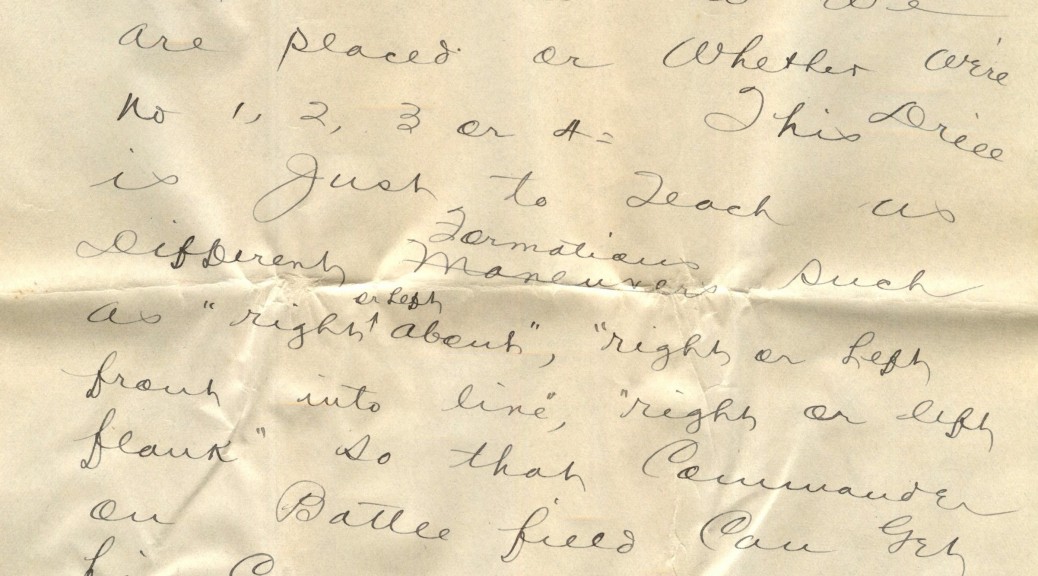 we
are placed or Whether We're
No 1, 2, 3 or 4 = This Drill
is Just to Teach us
Formations
Different Maneuvers such
or Left
as "right ↑ about", "right or Left
front into line", "right or left
flank" so that Commander
on Battle field Can Get